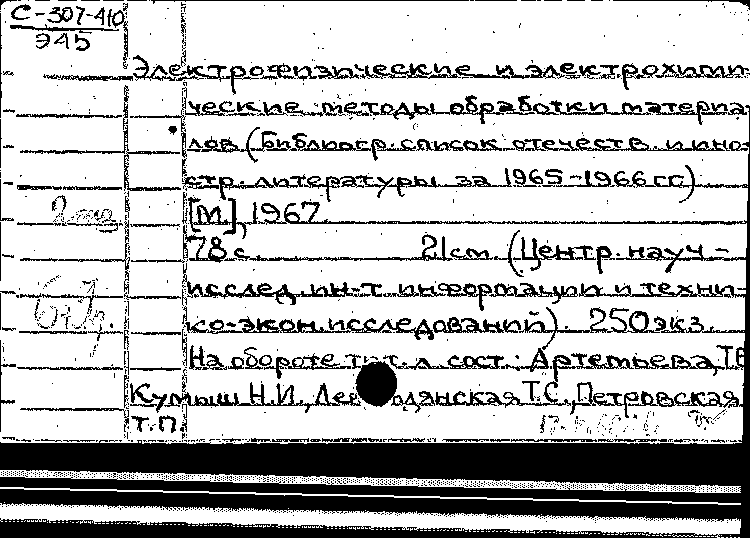 С-307-410
Э45
Электрофизические и электрохими-
ческие методы обработки материа-
лов (Библиогр. список отечеств. и ино-
стр. литературы за 1965-1966 гг.)
[М.], 1967.
78 с. 21 см. (Центр. науч-
исслед. ин-т информации и техни-
ко-экон. исследований). 250 экз.
На обороте тит. л. сост.: Артемьева, Т.В
Кумыш Н.И., Т.С., Петровская
Т.П.